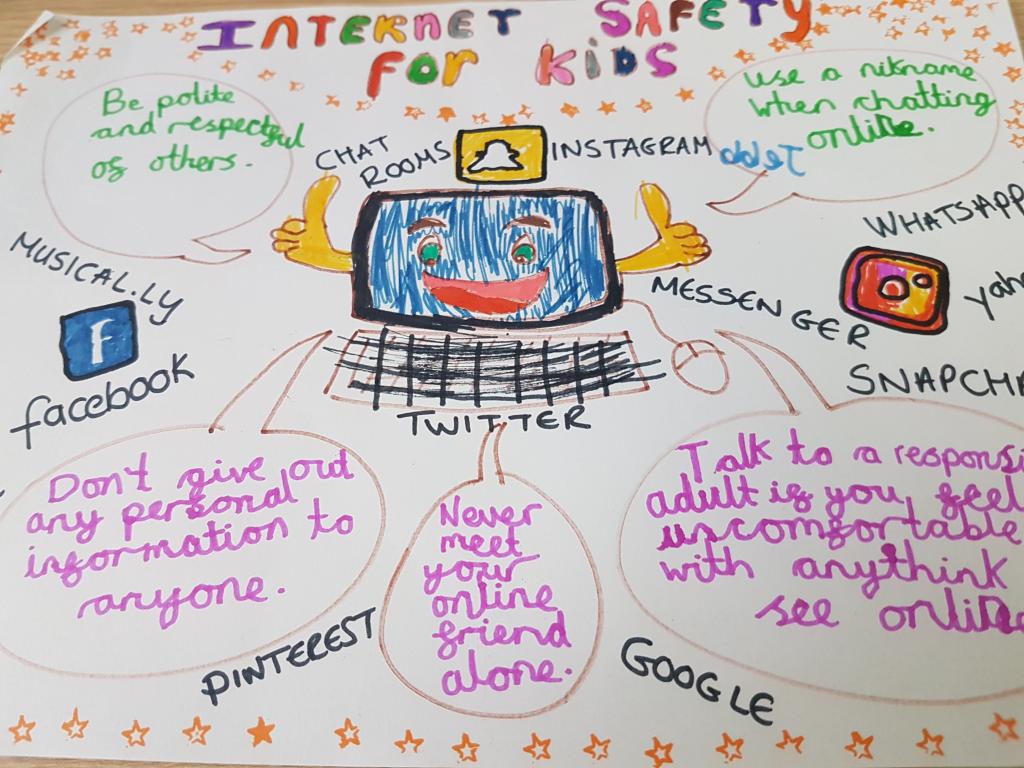 INTERNET SAFETY
FOR KIDS
Be polite
and respectful
of others.
CHAT
ROOMS
INSTAGRAM
Use a nikname
when chatting
online.
MUSICAL.LY
f
facebook
MESSENGER
WHATSAPP
yah
SNAPCHA
TWITTER
Don't give out
any personal
information to
anyone.
Never
meet
your
online
friend
alone.
Talk to a responsi
adult if you feel
uncomfortable
with anythink
see online
PINTEREST
GOOGLE